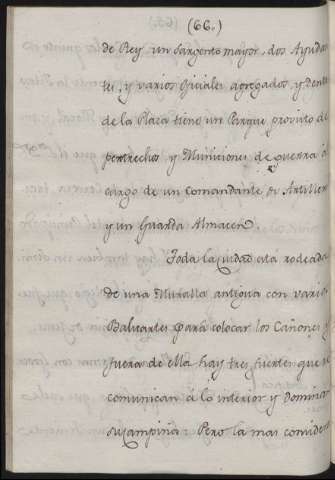 (66.)
de Rey un Sargento mayor, dos Ayudan
tes, y varios Oficiales agregados, y dentro
de la Plaza tiene un Parque provisto de
pertrechos y Municiones de guerra á
cargo de un comandante de Artilleria
y un Guarda Almacen
Toda la ciudad está rodeada
de una Muralla antigua con varios
Baluartes para colocar los Cañones y
fuera de ella hay tres fuertes que se
comunican á lo interior y Dominan
su campiña: Pero la mas considera